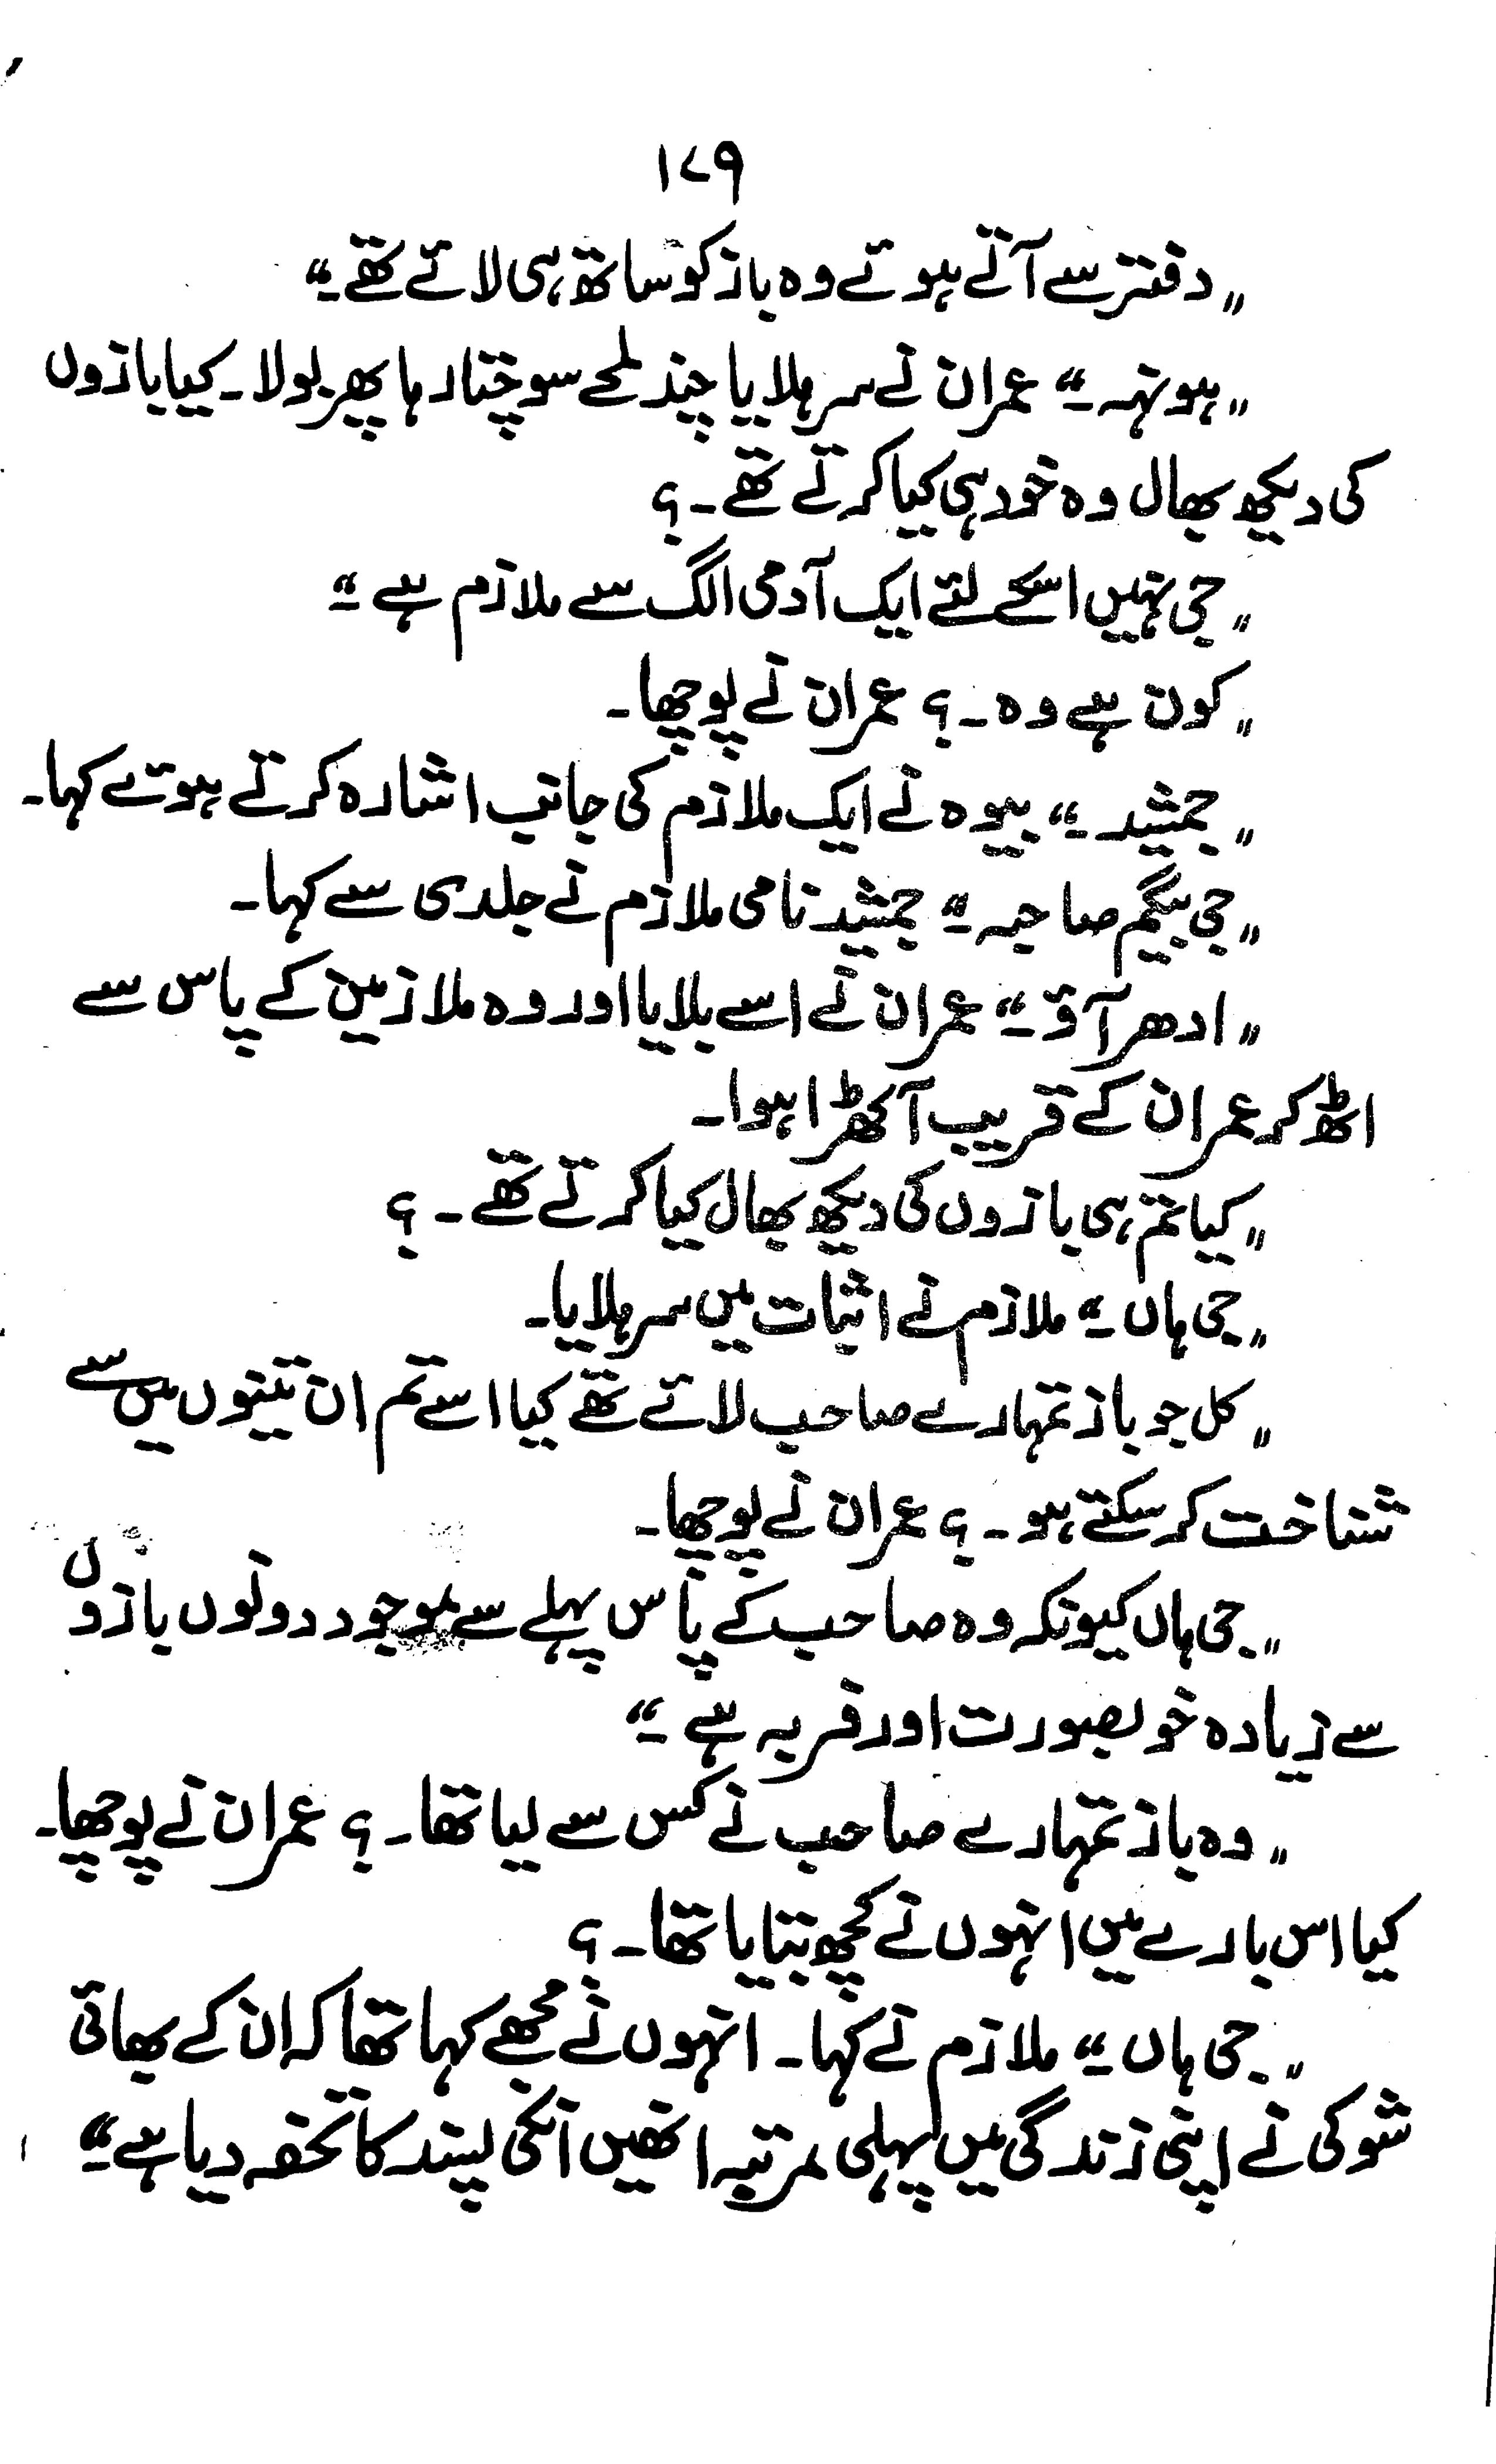 ۱۷۹
"دفتر سے آتے ہوئے وہ باز کو ساتھ ہی لائے تھے۔"
"ہونہہ۔" عمران نے سر ہلایا چند لمحے سوچتا رہا پھر بولا۔ کیا بازوں
کی دیکھ بھال وہ خود ہی کیا کرتے تھے۔؟
"جی نہیں اسکے لئے ایک آدمی الگ سے ملازم ہے۔"
"کون ہے وہ۔؟ عمران نے پوچھا۔
"جمشید۔" بیوہ نے ایک ملازم کی جانب اشارہ کرتے ہوئے کہا۔
"جی بیگم صاحبہ۔" جمشید نامی ملازم نے جلدی سے کہا۔
"ادھر آؤ۔" عمران نے اسے بلایا اور وہ ملازمین کے پاس سے
اٹھ کر عمران کے قریب آ کھڑا ہوا۔
"کیا تم ہی بازوں کی دیکھ بھال کیا کرتے تھے۔؟
"جی ہاں۔" ملازم نے اثبات میں سر ہلایا۔
"کل جو باز تمہارے صاحب لائے تھے کیا اسے تم ان تینوں میں سے
شناخت کر سکتے ہو۔؟ عمران نے پوچھا۔
"جی ہاں کیونکہ وہ صاحب کے پاس پہلے سے موجود دونوں بازوں
سے زیادہ خوبصورت اور فربہ ہے۔"
"وہ باز تمہارے صاحب نے کس سے لیا تھا۔؟ عمران نے پوچھا۔
کیا اس بارے میں انہوں نے کچھ بتایا تھا۔؟
"جی ہاں۔" ملازم نے کہا۔ انہوں نے مجھے کہا تھا کہ ان کے بھائی
شوکی نے اپنی زندگی میں پہلی مرتبہ انھیں انکی پسند کا تحفہ دیا ہے۔"